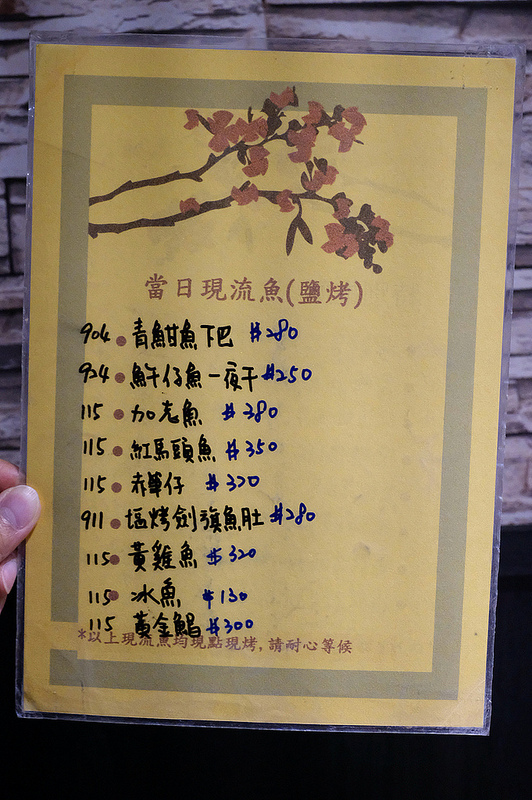 當日現流魚(鹽烤)
904 青魽魚下巴 #280
924 魚午仔魚一夜干 #250
115 加志魚 #380
115 紅馬頭魚 #350
115 赤筆仔 #320
911 塩烤劍旗魚肚 #280
115 黃雞魚 #320
115 冰魚 #130
115 黃金鯧 #300
*以上現流魚均現點現烤,請耐心等候